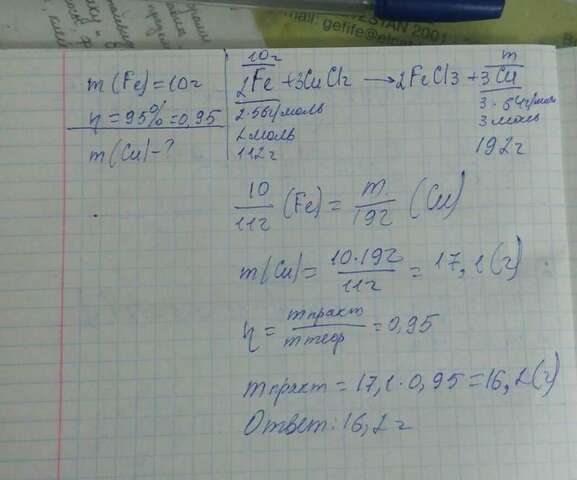 STAN 2001
mail: gefife@
m(Fe)=10г
η=95%=0,95
m(Cu)-?
10г m
2Fe+3CuCl2→2FeCl3+3Cu
2·56г/моль 3·64г/моль
2моль 3моль
112г 192г
10/112 (Fe)=m/192 (Cu)
m(Cu)=10·192/112=17,1(г)
η=mпракт/mтеор=0,95
mпракт=17,1·0,95=16,2(г)
Ответ:16,2г